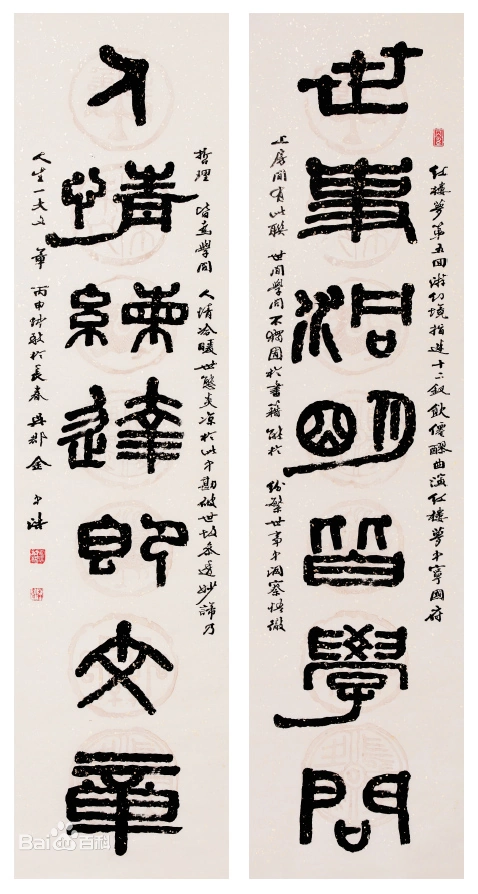 紅樓夢第五回游幻境指迷十二釵飲僊醪曲演紅樓夢中寧國府
世事洞明皆學問
上房有此聯世間學問不獨囿於書籍能於紛繁世事中洞察悟徹
哲理皆為學問人情冷暖世態炎涼於此中勘破世故參透妙諦乃
人情練達即文章
人生一大文章丙申於長春吳郡金中浩
Bai百科